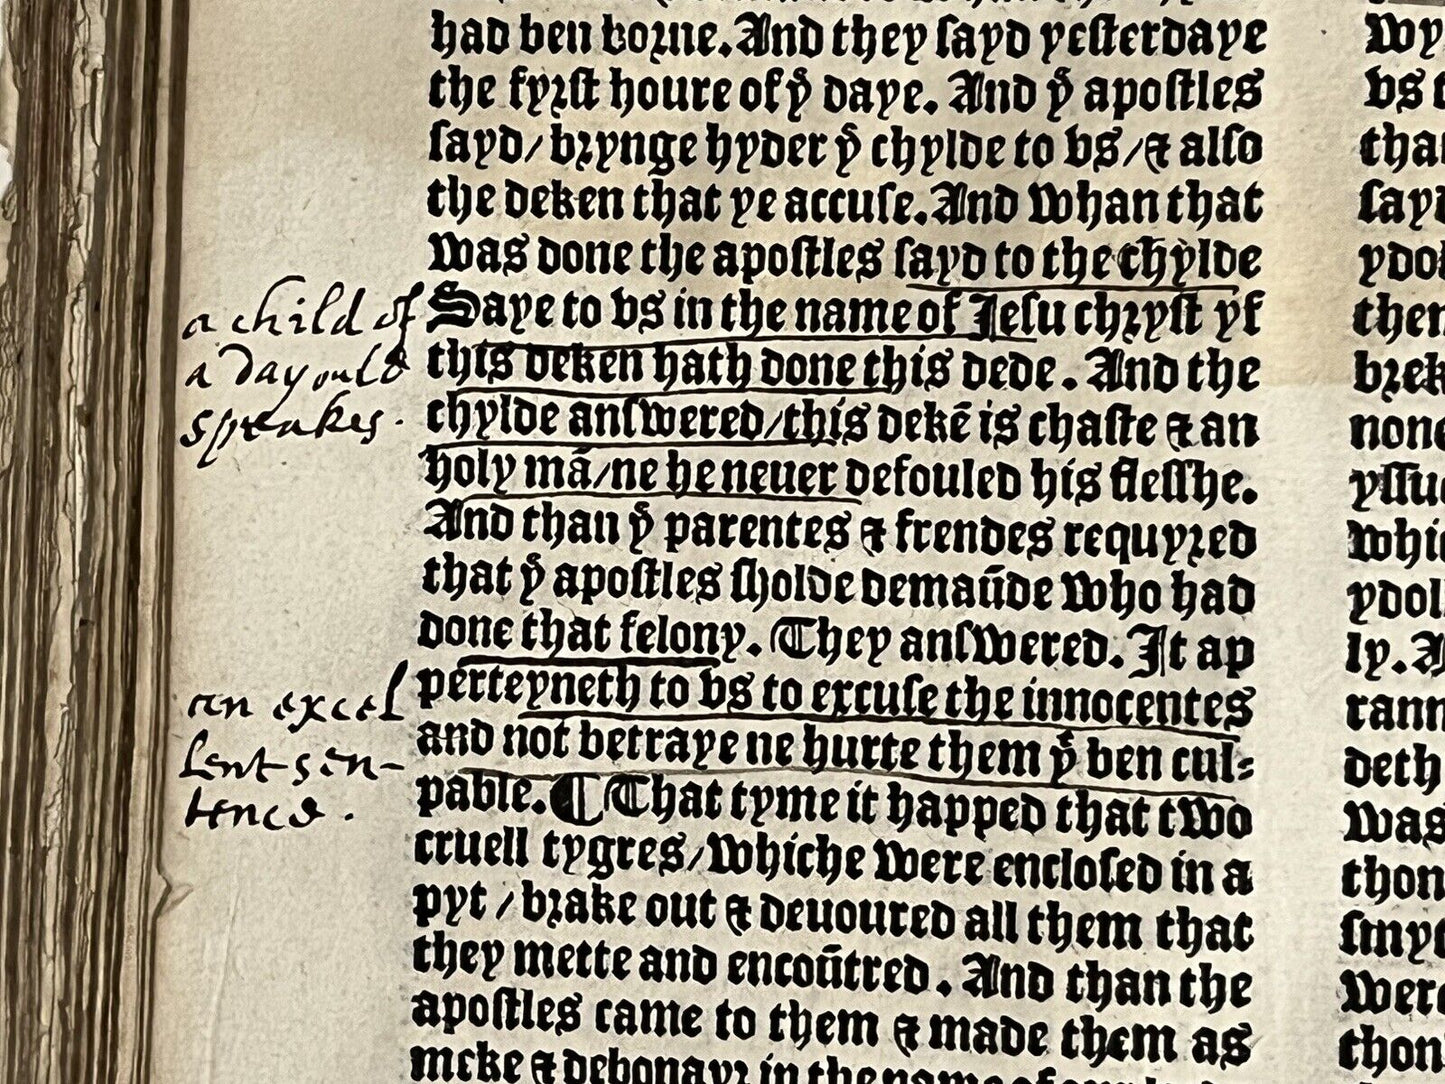 had ben borne. And they sayd yesterdaye
the fyrst houre of yͤ daye. And yͤ apostles
sayd/ brynge hyder yͤ chylde to vs/ & also
the deken that ye accuse. And whan that
was done the apostles sayd to the chylde
Saye to vs in the name of Jesu chryst yf
this deken hath done this dede. And the
chylde answered/ this dekē is chaste & an
holy mā/ ne he neuer defouled his flesshe.
And than yͤ parentes & frendes requyred
that yͤ apostles sholde demaūde who had
done that felony. They answered. It ap
perteyneth to vs to excuse the innocentes
and not betraye ne hurte them yͭ ben cul-
pable. ¶ That tyme it happed that two
cruell tygres/ whiche were enclosed in a
pyt / brake out & deuoured all them that
they mette and encoūtred. And than the
apostles came to them & made them as
meke & debonayr in the name of
a child of
a day ould
speakes.
an excel
lent sen-
tence.
wy
vs
tha
sayd
ydol
them
brek
none
yssu
whi
ydol
ly.
rann
deth
was
thon
smyt
were
thon